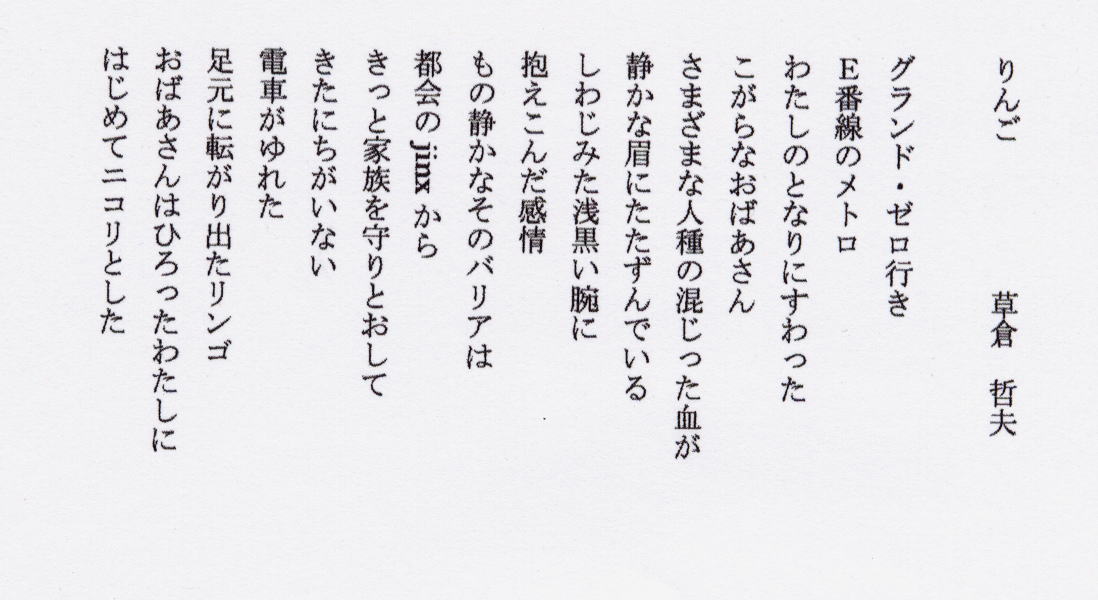 りんご　　　　　草倉　哲夫
グランド・ゼロ行き
E番線のメトロ
わたしのとなりにすわった
こがらなおばあさん
さまざまな人種の混じった血が
静かな眉にたたずんでいる
しわじみた浅黒い腕に
抱えこんだ感情
もの静かなそのバリアは
都会の jinx から
きっと家族を守りとおして
きたにちがいない
電車がゆれた
足元に転がり出たリンゴ
おばあさんはひろったわたしに
はじめてニコリとした